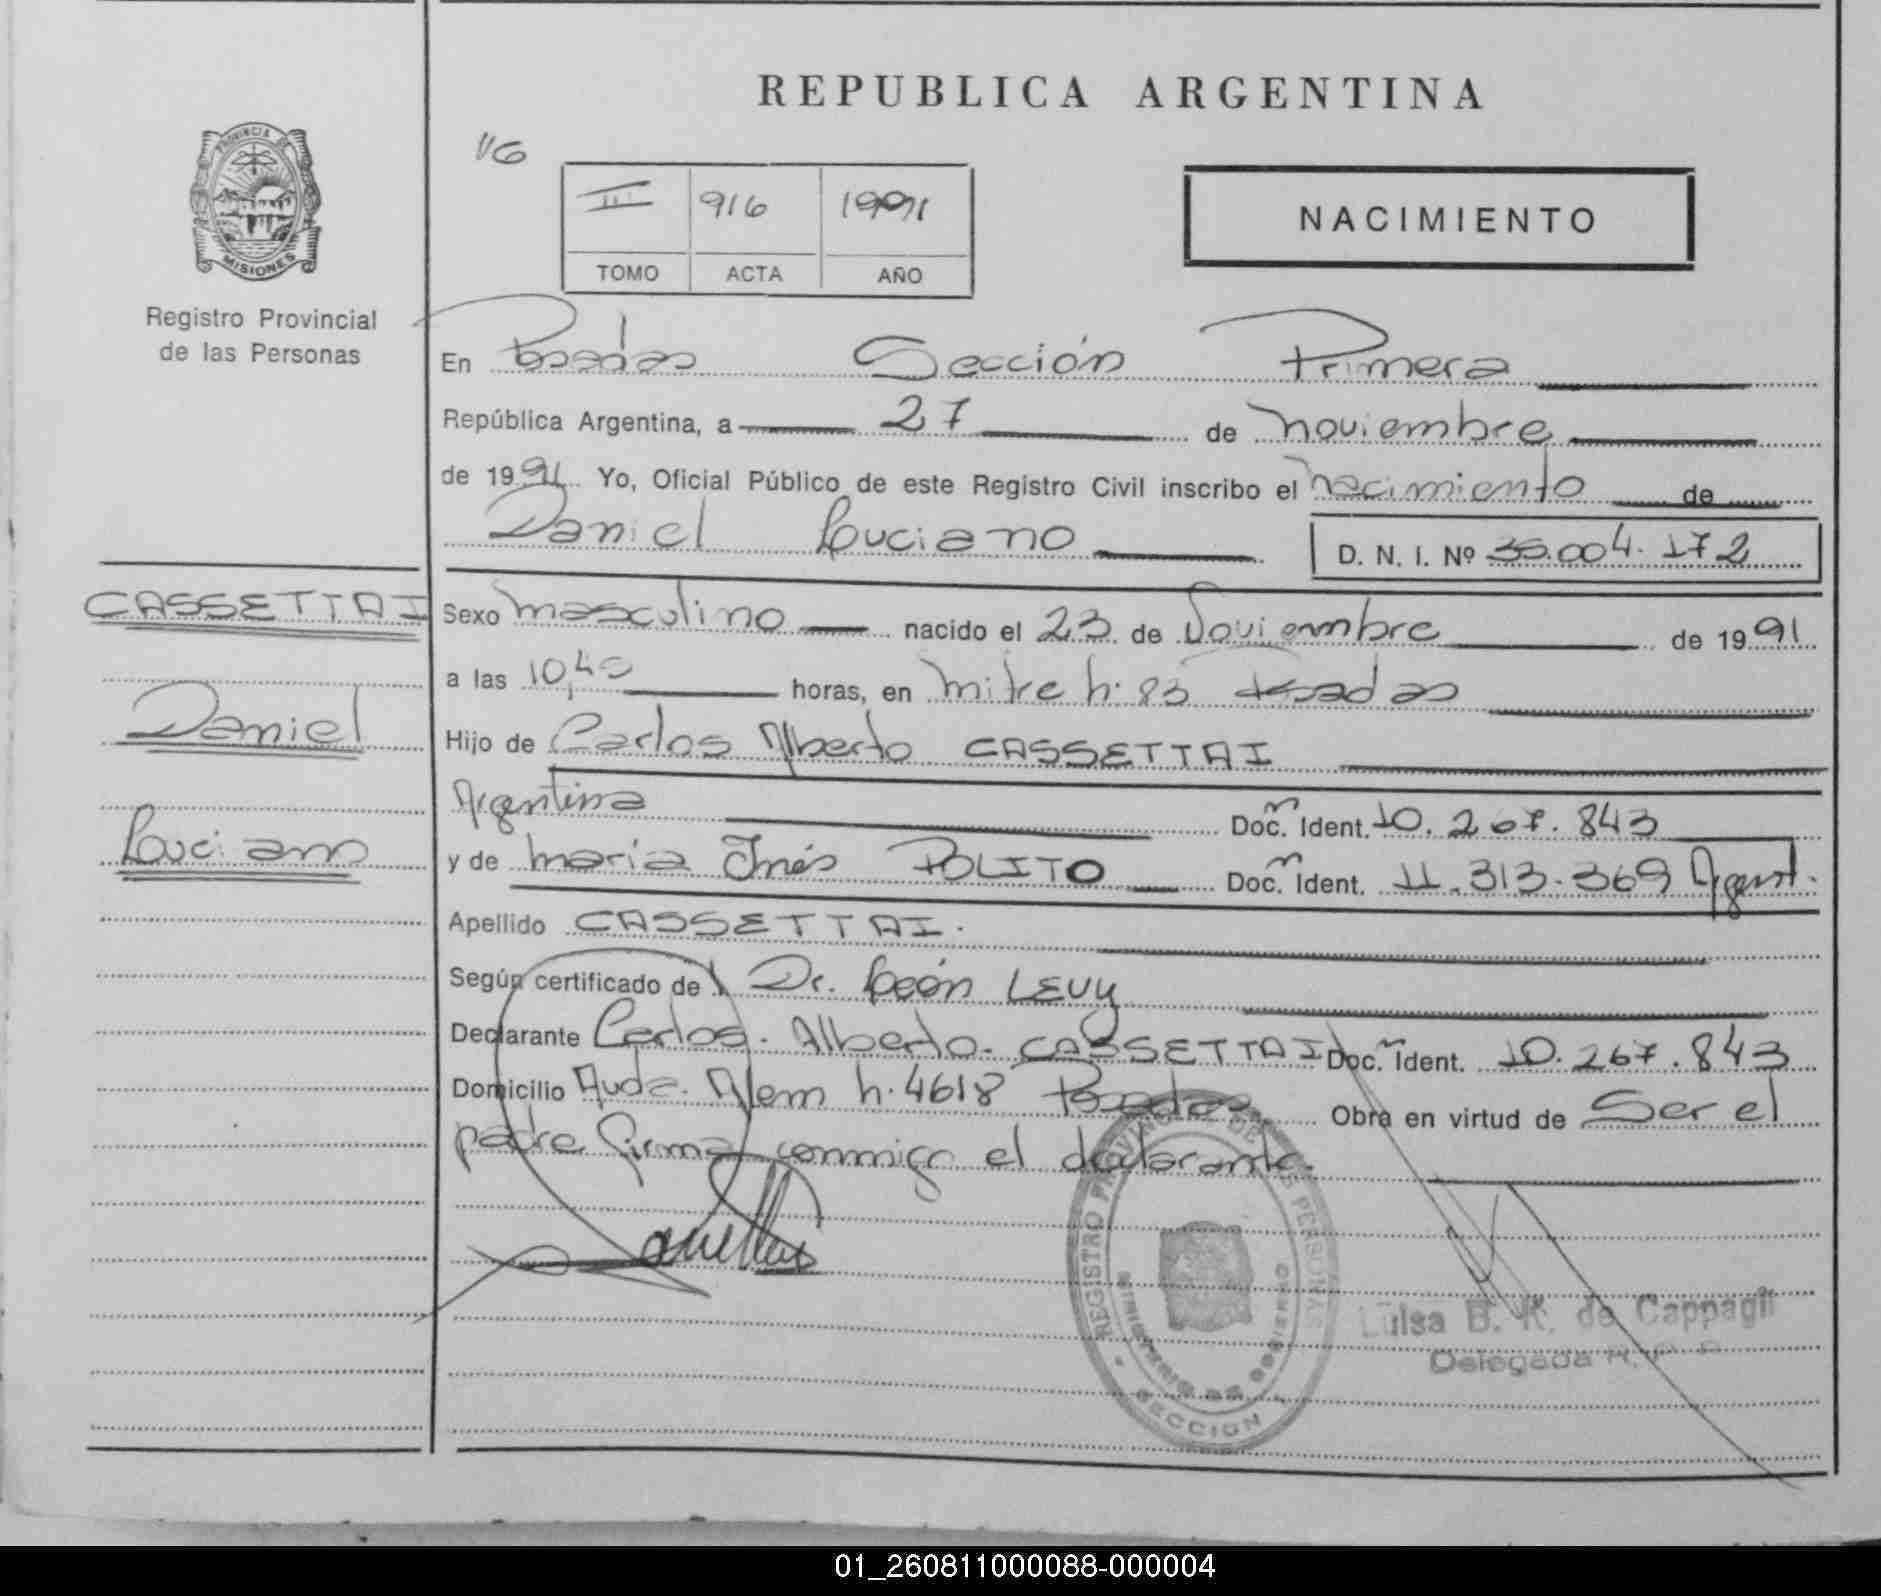 REPUBLICA ARGENTINA
PROVINCIA DE
MISIONES
Registro Provincial
de las Personas
III 916 1991
TOMO ACTA AÑO
NACIMIENTO
En Posadas Sección Primera
República Argentina, a 27 de noviembre
de 1991 Yo, Oficial Público de este Registro Civil inscribo el nacimiento de
Daniel Luciano D. N. I. Nº 36.004.172
CASSETTAI
Daniel
Luciano
Sexo masculino nacido el 23 de Noviembre de 1991
a las 10,40 horas, en mitre h. 83 Posadas
Hijo de Carlos Alberto CASSETTAI
Argentina Doc. Ident. 10.267.843
y de maría Inés POLITO Doc. Ident. 11.313.369 Argent.
Apellido CASSETTAI.
Según certificado de Dr. León LEVY
Declarante Carlos. Alberto. CASSETTAI Doc. Ident. 10.267.843
Domicilio Avda. Alem h. 4618 Posadas Obra en virtud de Ser el
padre firma conmigo el declarante.
REGISTRO PROVINCIAL DE LAS PERSONAS
MINISTERIO DE GOBIERNO
SECCION
Luisa B. K. de Cappagli
Delegada R. P. P.
01_260811000088-000004